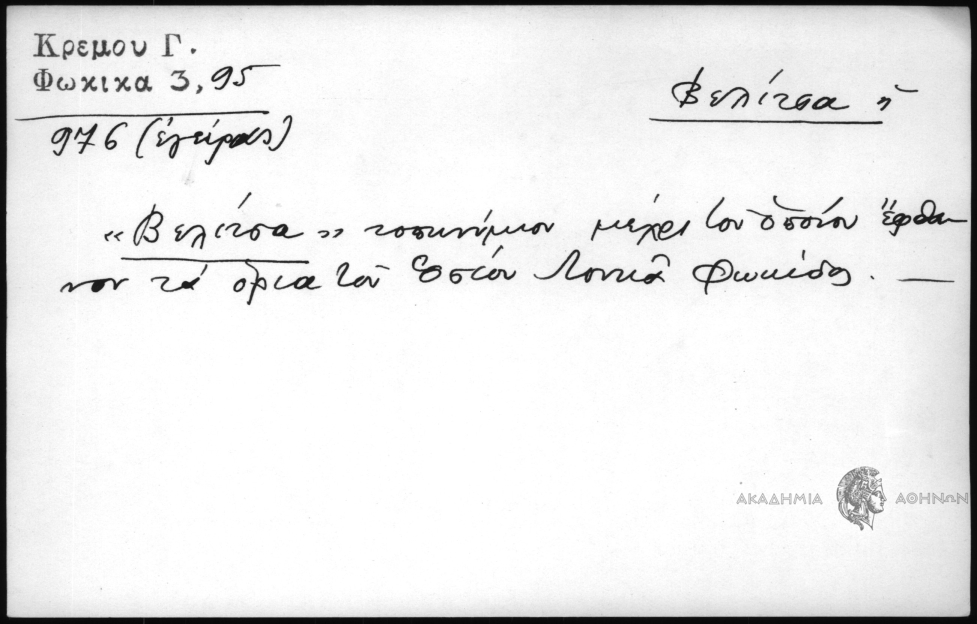 Κρεμου Γ.
Φωκικα 3, 95
976 (ἐγείρας)
Βελίτσα ἡ
«Βελίτσα» τοπωνύμιον μέχρι τοῦ ὁποίου ἔφθα
νον τὰ ὅρια τοῦ Ὁσίου Λουκᾶ Φωκίδος. —
ΑΚΑΔΗΜΙΑ ΑΘΗΝΩΝ